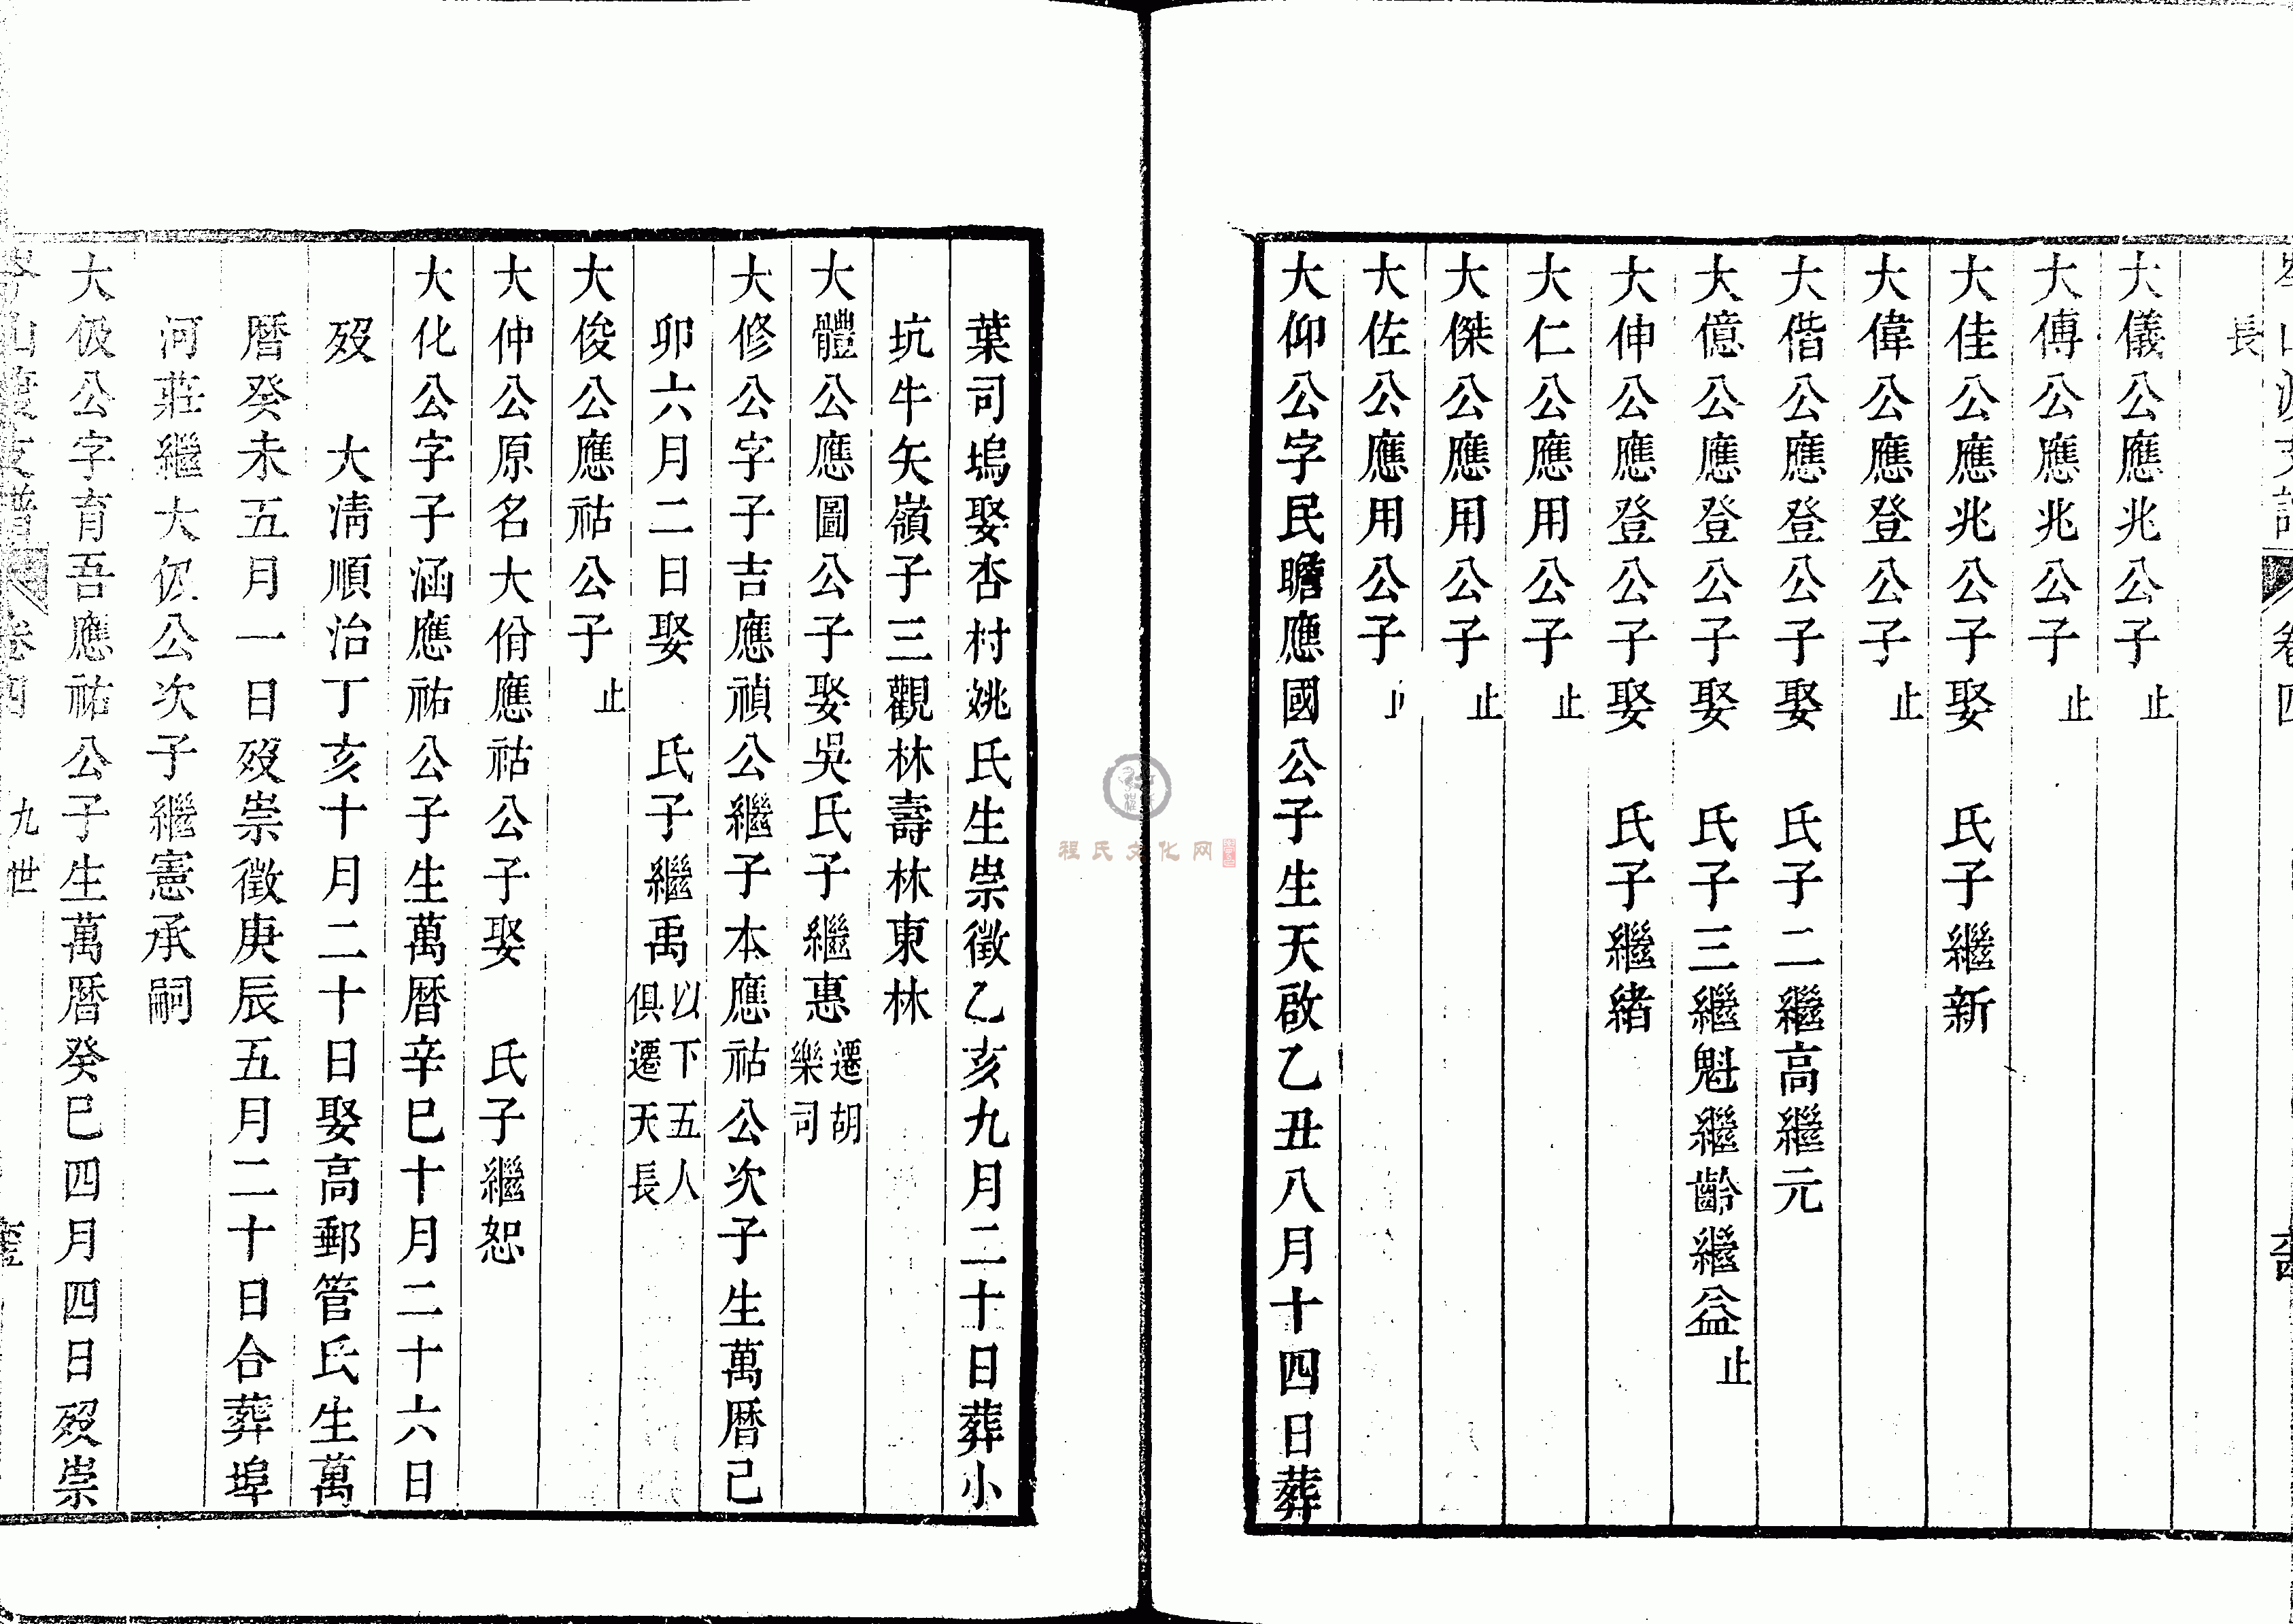 長
大儀公應兆公子止
大傅公應兆公子止
大佳公應兆公子娶 氏子繼新
大偉公應登公子止
大偕公應登公子娶 氏子二繼高繼元
大億公應登公子娶 氏子三繼魁繼齡繼益止
大伸公應登公子娶 氏子繼緒
大仁公應用公子止
大傑公應用公子止
大佐公應用公子止
大仰公字民瞻應國公子生天啟乙丑八月十四日葬
葉司塢娶杏村姚氏生崇徵乙亥九月二十日葬小
坑牛矢嶺子三觀林壽林東林
大體公應圖公子娶吳氏子繼惠遷胡樂司
大修公字子吉應禎公繼子本應祜公次子生萬曆己
卯六月二日娶 氏子繼禹以下五人俱遷天長
大俊公應祜公子止
大仲公原名大佾應祜公子娶 氏子繼恕
大化公字子涵應祐公子生萬曆辛巳十月二十六日
歿 大清順治丁亥十月二十日娶高郵管氏生萬
曆癸未五月一日歿崇徵庚辰五月二十日合葬埠
河莊繼大伋公次子繼憲承嗣
大伋公字育吾應祐公子生萬曆癸巳四月四日歿崇
卷四 九世
程氏文化网